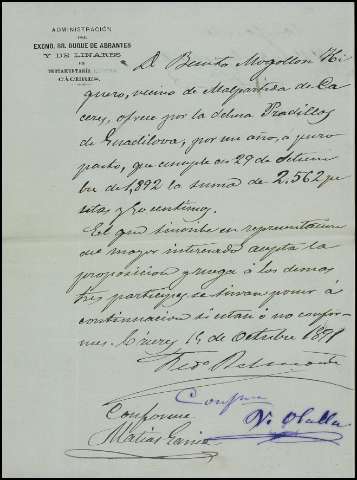 ADMINISTRACIÓN
DEL
EXCMO. SR. DUQUE DE ABRANTES
Y DE LINARES
EN
CÁCERES.
D. Benito Mogollon Hi
guero, vecino de Malpartida de Ca
ceres, ofrece por la dehesa Pradillos
de Guadilova, por un año, a puro
pasto, que cumple en 29 de Setiem
bre de 1,892 la suma de 2,562 pe
setas y 50 centimos.
El que suscribe en representacion
del mayor interesado acepta la
proposicion y ruega á los demas
tres participes se sirvan poner á
continuacion si estan ó no confor
mes. Cáceres 14 de Octubre 1891
Conforme
Conforme
V. Olalla
Matias Garcia